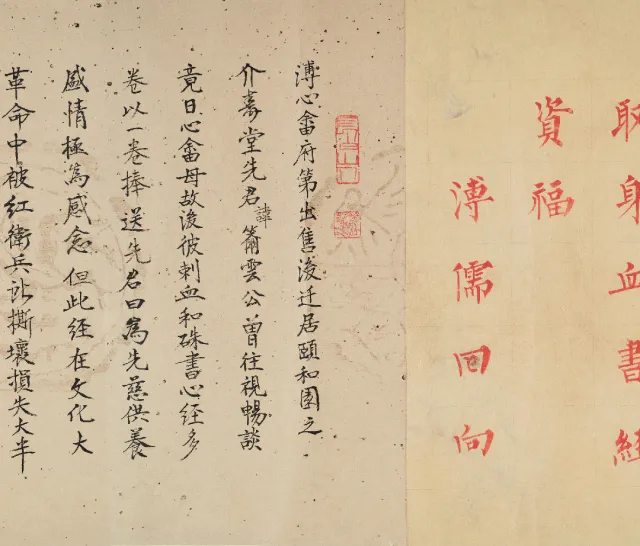 取身血書經
資福
溥儒回向
溥心畬府第出售後迁居頤和園之
介壽堂先君諱雲公曾往視暢談
竟日心畬母故後彼刺血和硃書心經多
卷以一卷捧送先君曰為先慈供養
盛情極為感念但此经在文化大
革命中被紅衛兵撕壞損失大半